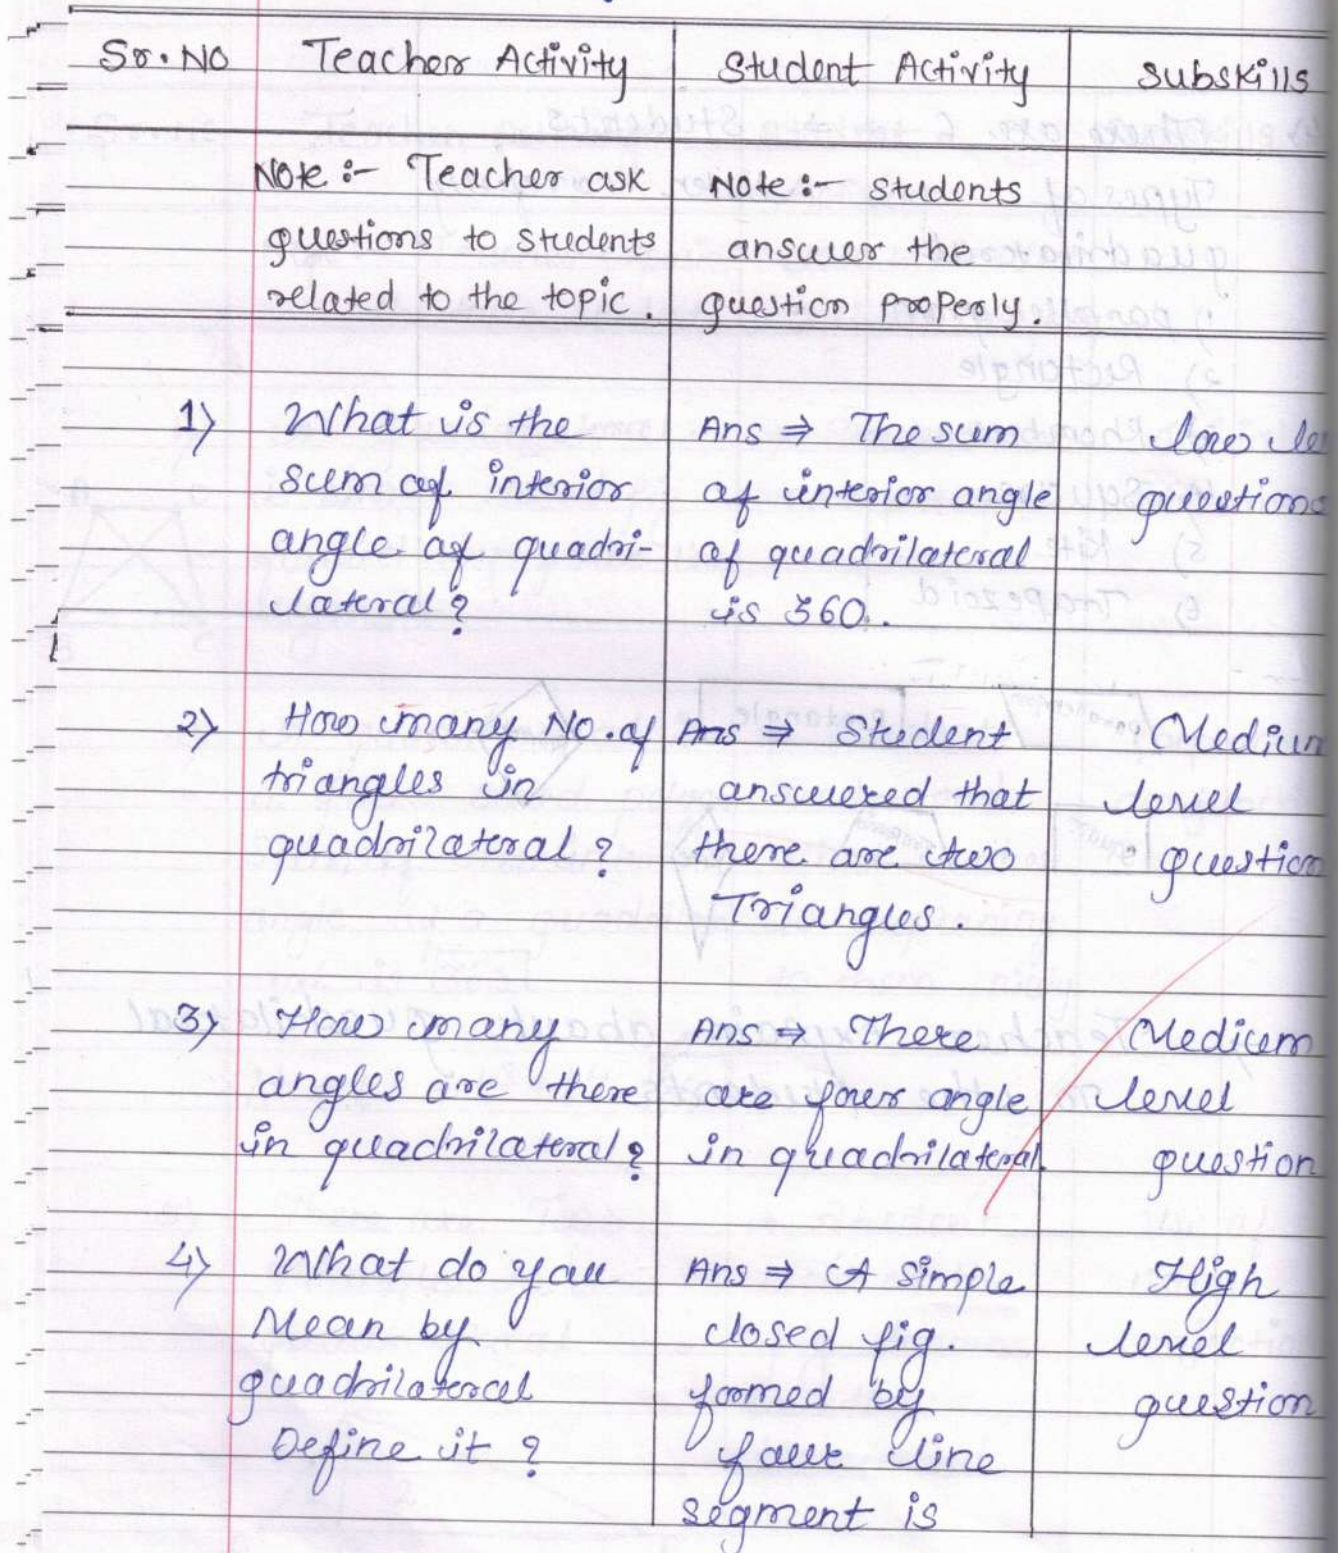 Sr. No Teacher Activity Student Activity Subskills
Note :- Teacher ask
questions to students
related to the topic.
Note :- Students
answer the
question properly.
1) What is the
sum of interior
angle of quadri-
lateral?
Ans ⇒ The sum
of interior angle
of quadrilateral
is 360.
low le
questions
2) How many No. of
triangles in
quadrilateral?
Ans ⇒ Student
answered that
there are two
Triangles.
Medium
level
question
3) How many
angles are there
in quadrilateral?
Ans ⇒ There
are four angle
in quadrilateral.
Medium
level
question
4) What do you
Mean by
quadrilateral
Define it?
Ans ⇒ A simple
closed fig.
formed by
four line
segment is
High
level
question